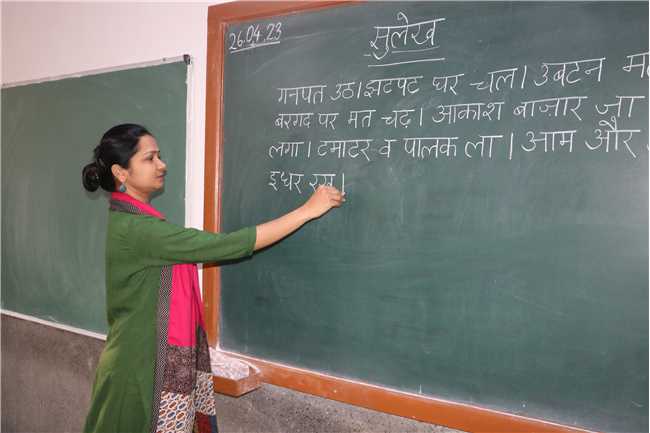 26.04.23
सुलेख
गनपत उठ। झटपट घर चल। उबटन
बरगद पर मत चढ़। आकाश बाजार जा
लगा। टमाटर व पालक ला। आम और
इधर रख।